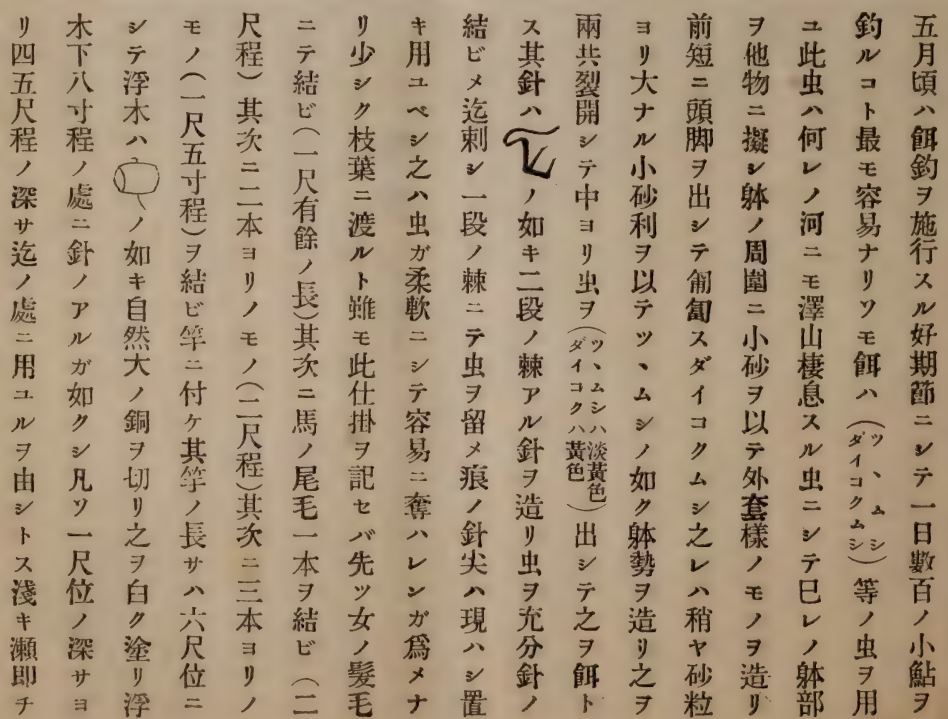 五月頃ハ餌釣ヲ施行スル好期節ニシテ一日數百ノ小鮎ヲ
釣ルコト最モ容易ナリソモ餌ハ(ツヽムシダイコクムシ)等ノ虫ヲ用
ユ此虫ハ何レノ河ニモ澤山棲息スル虫ニシテ已レノ躰部
ヲ他物ニ擬シ躰ノ周圍ニ小砂ヲ以テ外套樣ノモノヲ造リ
前短ニ頭脚ヲ出シテ匍匐スダイコクムシ之レハ稍ヤ砂粒
ヨリ大ナル小砂利ヲ以テツヽムシノ如ク躰勢ヲ造リ之ヲ
兩共裂開シテ中ヨリ虫ヲ(ツヽムシハ淡黃色ダイコクハ黃色)出シテ之ヲ餌ト
ス其針ハノ如キ二段ノ棘アル針ヲ造リ虫ヲ充分針ノ
結ビメ迄刺シ一段ノ棘ニテ虫ヲ留メ痕ノ針尖ハ現ハシ置
キ用ユベシ之ハ虫ガ柔軟ニシテ容易ニ奪ハレンガ爲メナ
リ少シク枝葉ニ渡ルト雖モ此仕掛ヲ記セバ先ツ女ノ髮毛
ニテ結ビ(一尺有餘ノ長)其次ニ馬ノ尾毛一本ヲ結ビ(二
尺程)其次ニ二本ヨリノモノ(二尺程)其次ニ三本ヨリノ
モノ(一尺五寸程)ヲ結ビ竿ニ付ケ其竿ノ長サハ六尺位ニ
シテ浮木ハノ如キ自然大ノ銅ヲ切リ之ヲ白ク塗リ浮
木下八寸程ノ處ニ針ノアルガ如クシ凡ソ一尺位ノ深サヨ
リ四五尺程ノ深サ迄ノ處ニ用ユルヲ由シトス淺キ瀨即チ